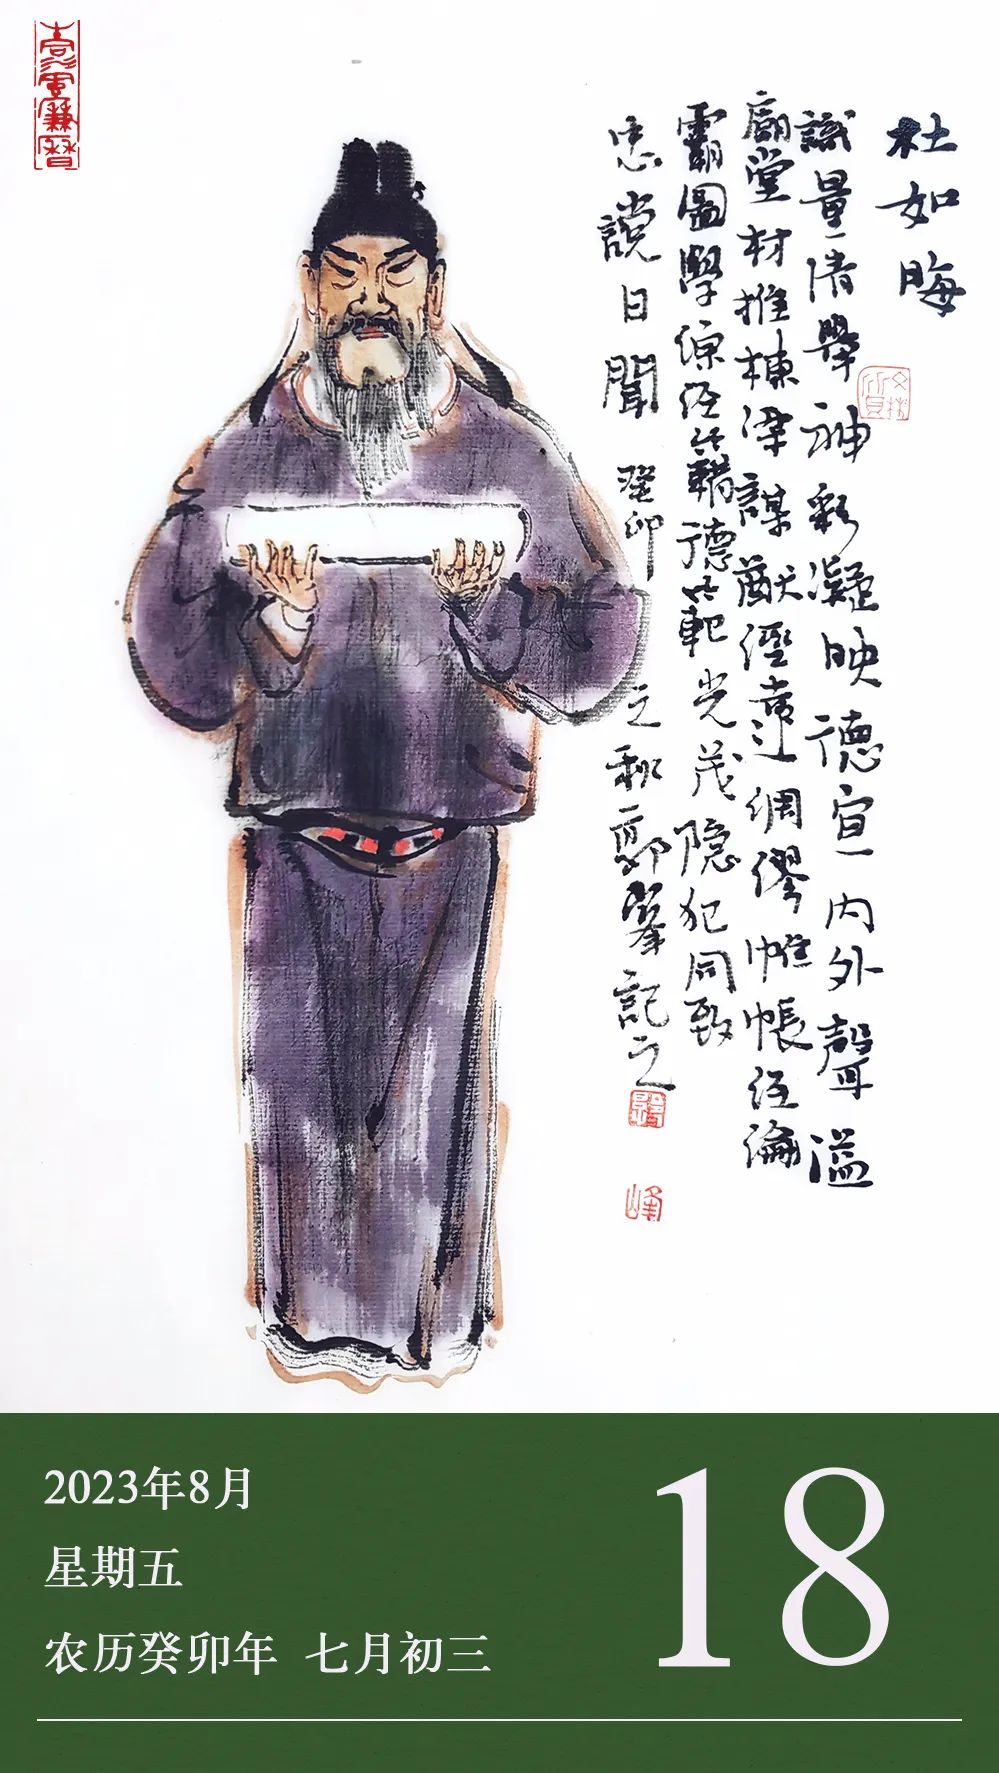 杜如晦
識量清舉神彩凝映德宣内外聲溢
廟堂材推棟梁謀猷經遠綢繆帷帳經綸
霸圖學綜經籍德範光茂隱犯同致
忠讜日聞 癸卯之秋郭峯記之
峰
2023年8月
星期五
农历癸卯年 七月初三
18